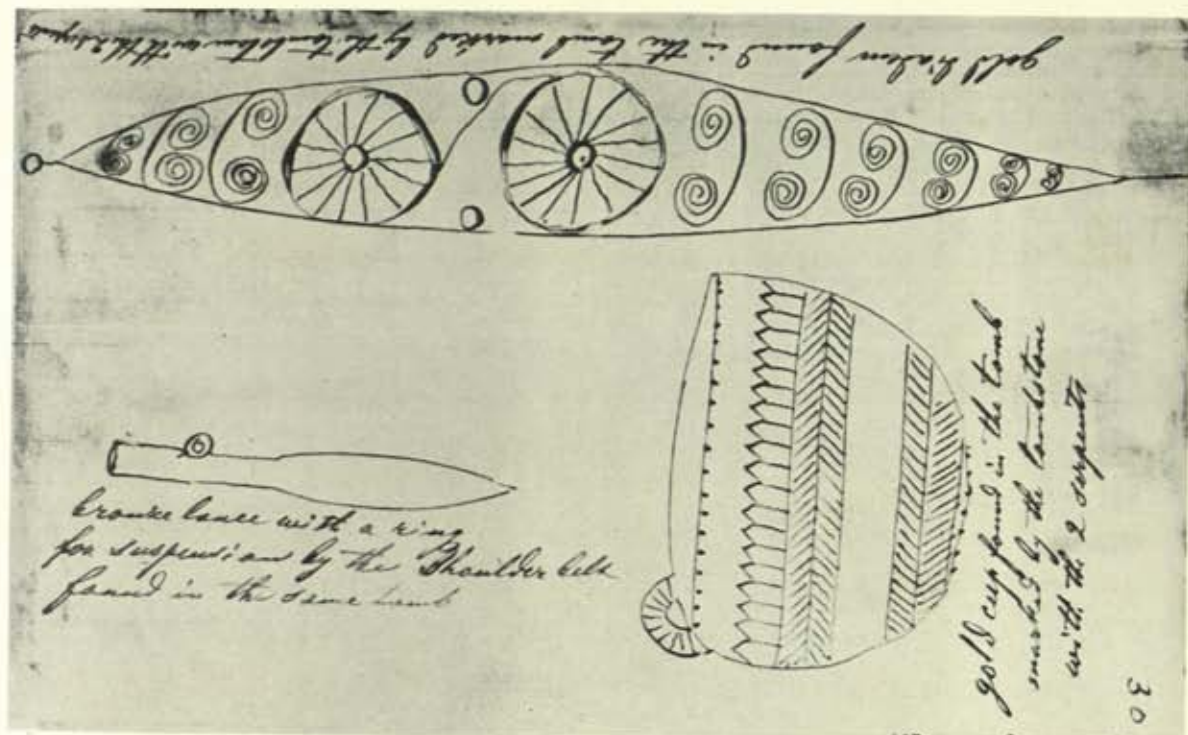 gold diadem found in the tomb marked by the tombstone with the 2 serpents
bronze lance with a ring
for suspension by the Shoulder belt
found in the same tomb
gold cup found in the tomb
marked by the tombstone
with the 2 serpents
30